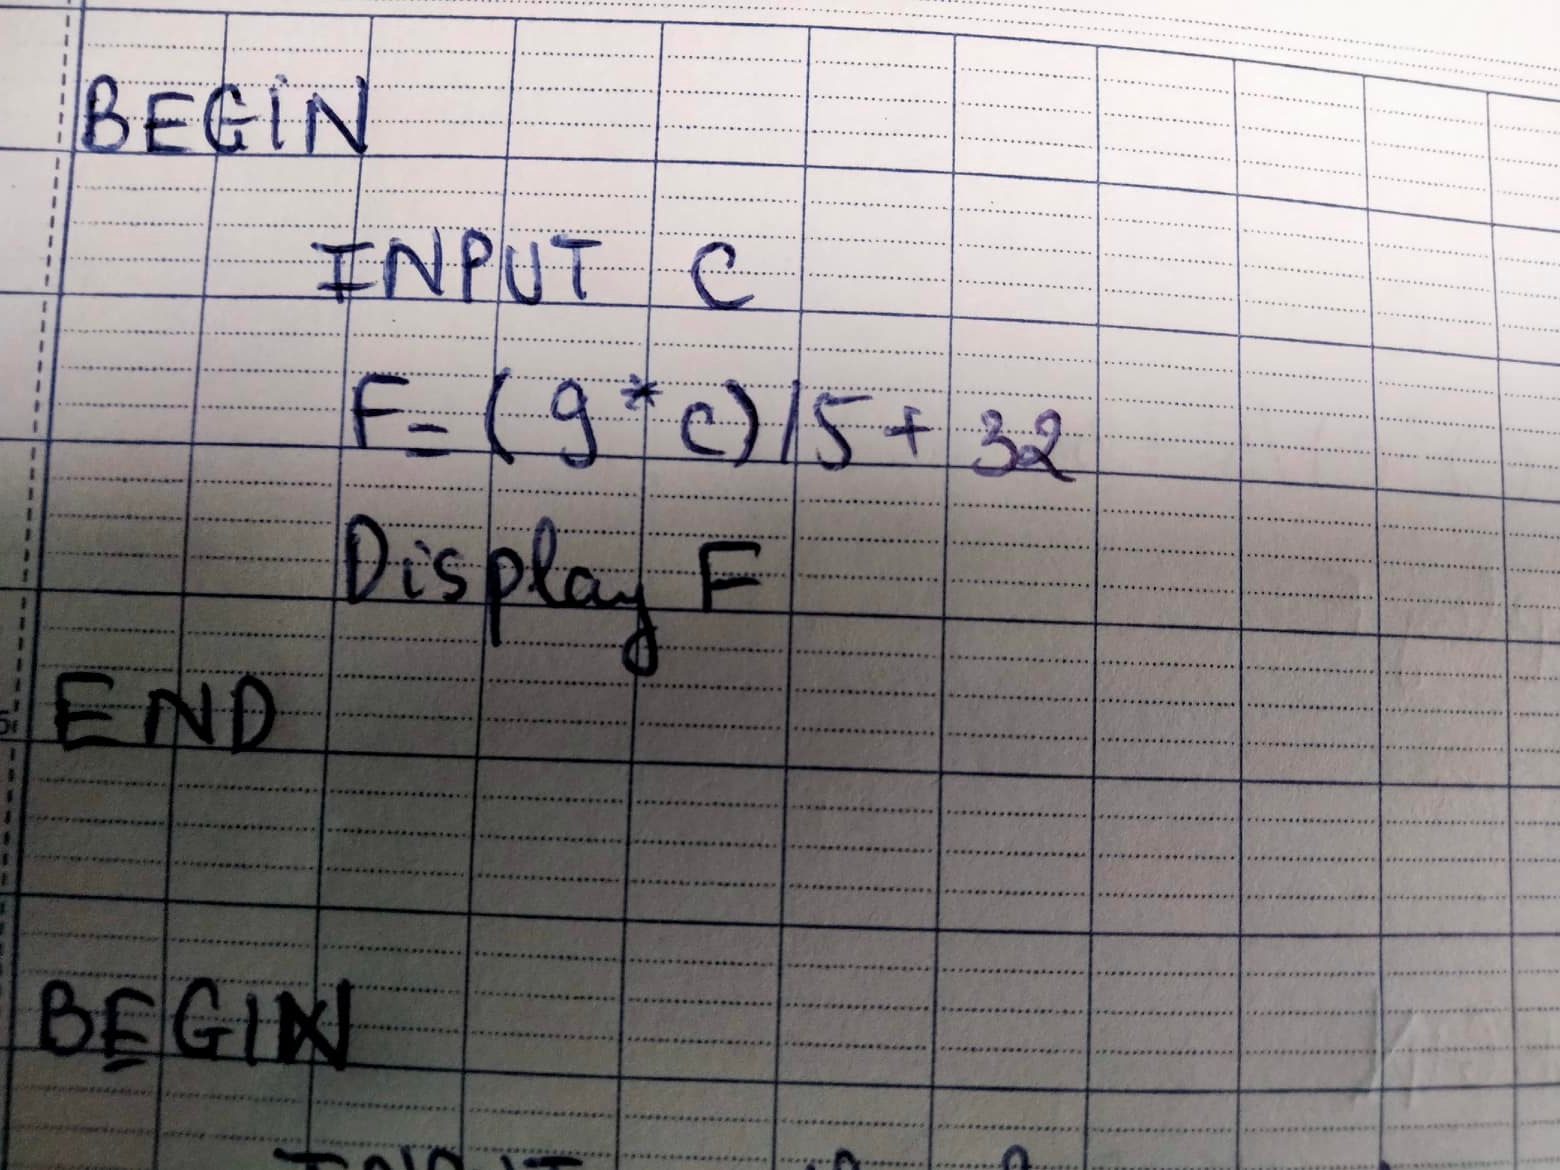 BEGIN
INPUT C
F= (9*c)/5+32
Display F
END
BEGIN